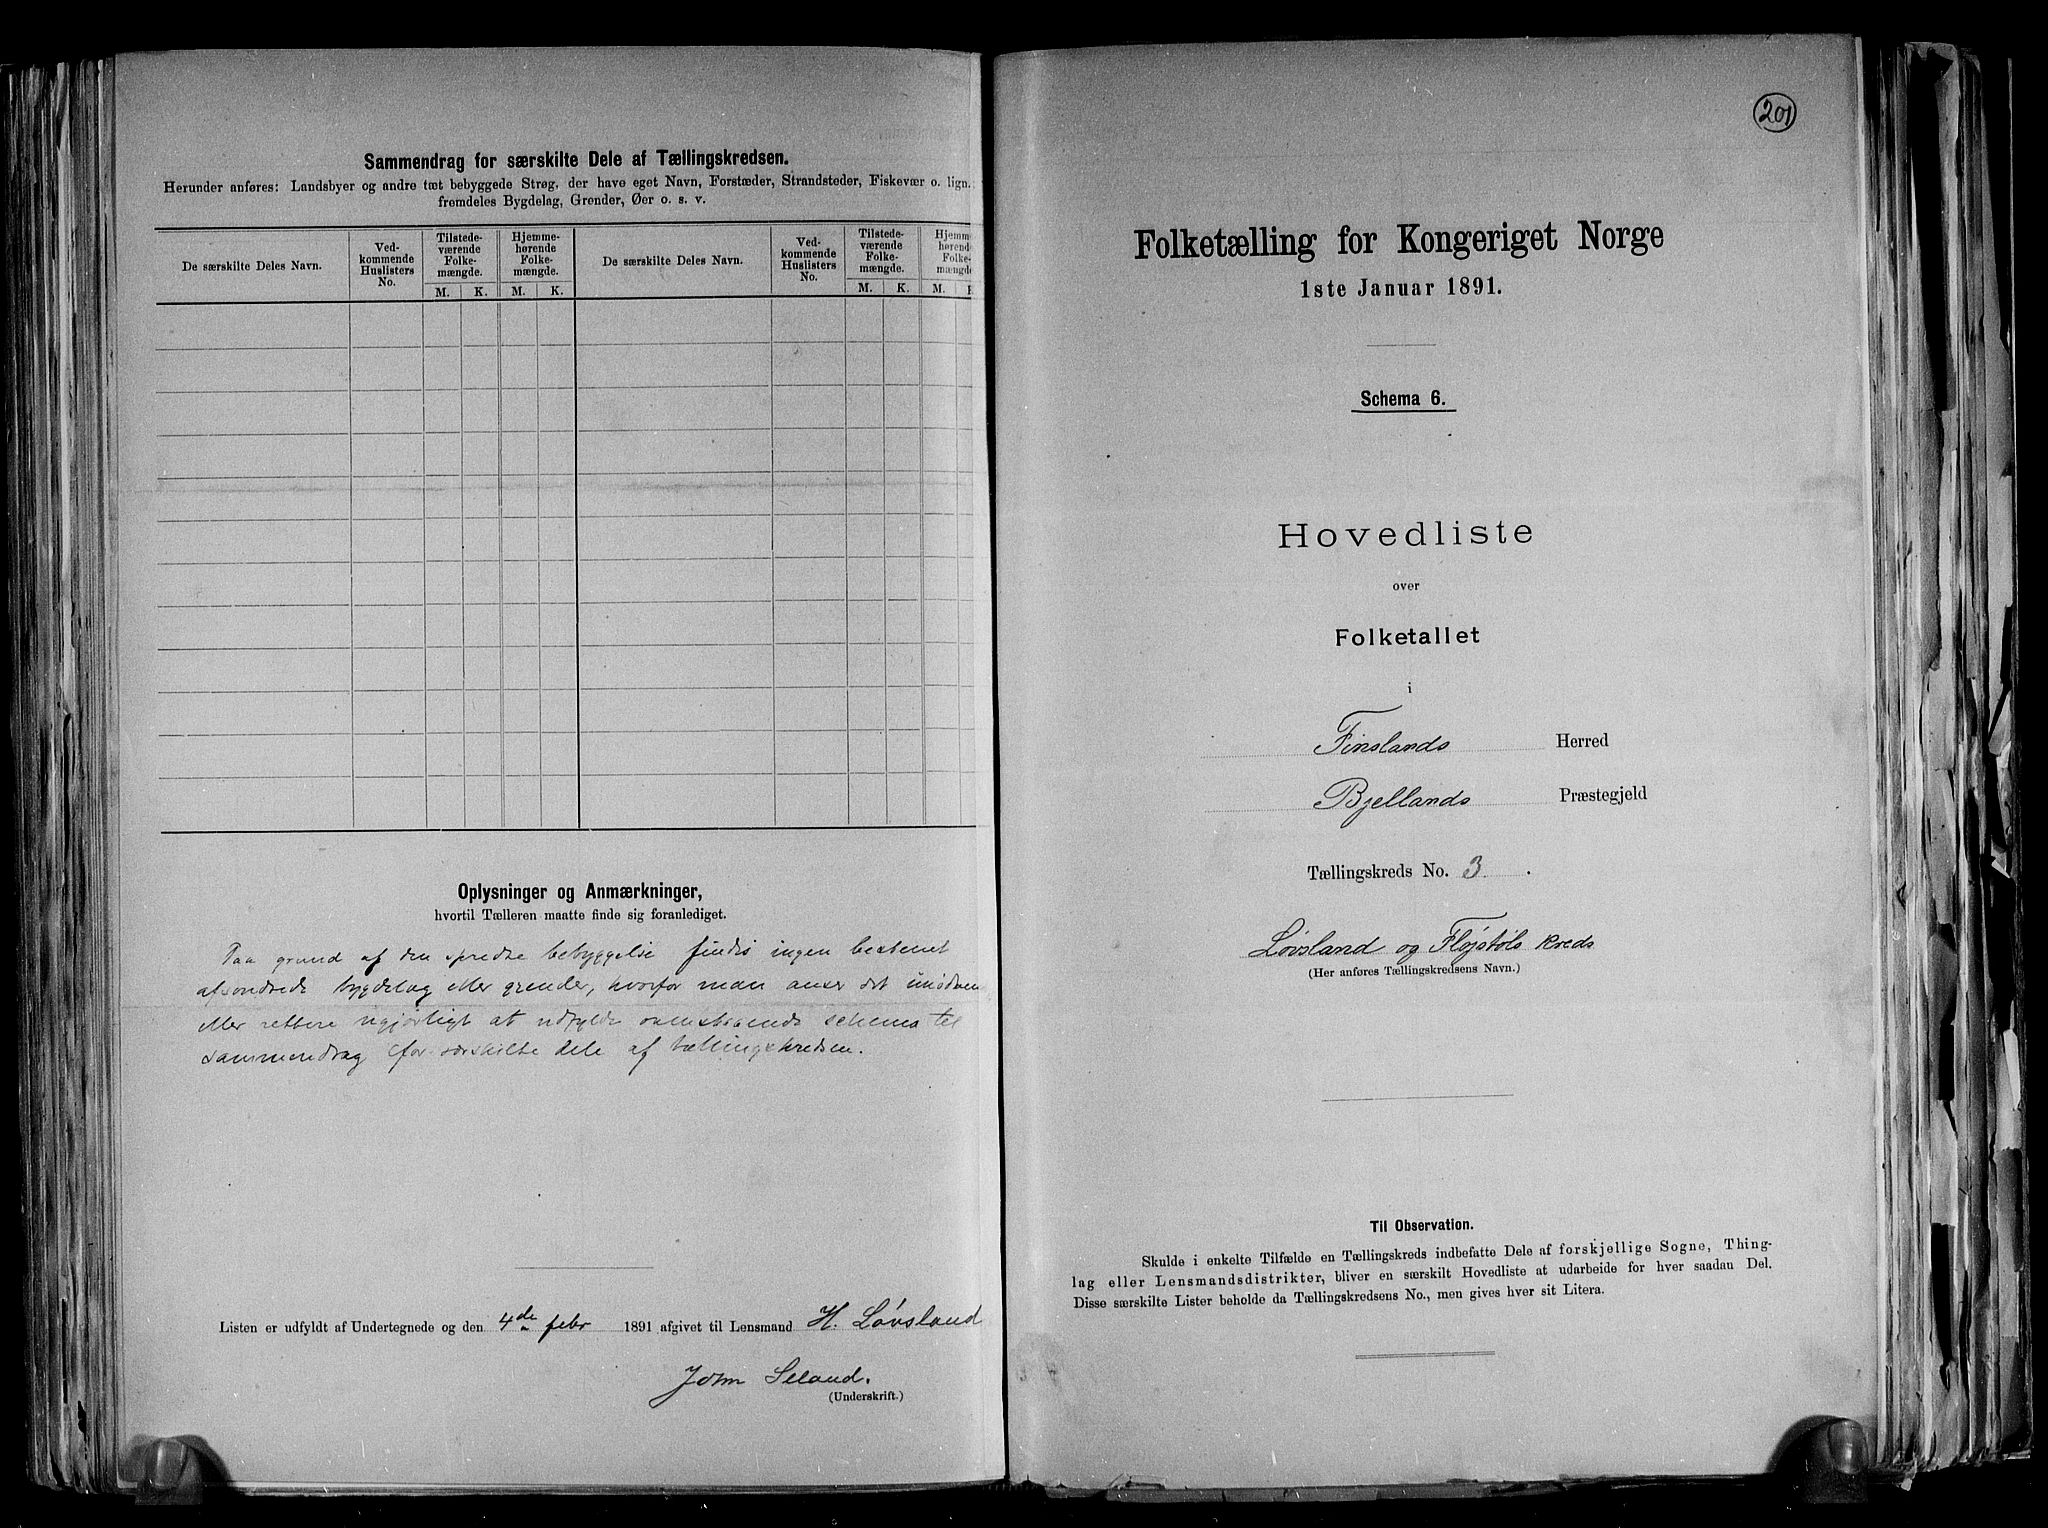 Sammendrag for særskilte Dele af Tællingskredsen.
Herunder anføres: Landsbyer og andre tæt bebyggede Strøg, der have eget Navn, Forstæder, Strandsteder, Fiskevær o. lign.
fremdeles Bygdelag, Grender, Øer o. s. v.
De særskilte Deles Navn.
Ved-
kommende
Huslisters
No.
Tilstede-
værende
Folke-
mængde.
Hjemme-
hørende
Folke-
mængde.
De særskilte Deles Navn.
Ved-
kommende
Huslisters
No.
Tilstede-
værende
Folke-
mængde.
Hjemme
hørende
Folke-
mængde
M. K. M. K. M. K. M.
Oplysninger og Anmærkninger,
hvortil Tælleren maatte finde sig foranlediget.
Paa grund af den spredte bebyggelse findes ingen bestemt
afsondrede bygdelag eller grender, hvorfor man anser det
eller rettere ugjørligt at udfylde ovenstaaende schema til
sammendrag for særskilte dele af tællingskredsen.
Listen er udfyldt af Undertegnede og den 4de febr 1891 afgivet til Lensmand H. Løvsland
John Seland.
(Underskrift.)
201
Folketælling for Kongeriget Norge
1ste Januar 1891.
Schema 6.
Hovedliste
over
Folketallet
i
Finslands Herred
Bjellands Præstegjeld
Tællingskreds No. 3.
Løvsland og Fløjstøls kreds
(Her anføres Tællingskredsens Navn.)
Til Observation.
Skulde i enkelte Tilfælde en Tællingskreds indbefatte Dele af forskjellige Sogne, Thing-
lag eller Lensmandsdistrikter, bliver en særskilt Hovedliste at udarbeide for hver saadan Del.
Disse særskilte Lister beholde da Tællingskredsens No., men gives hver sit Litera.